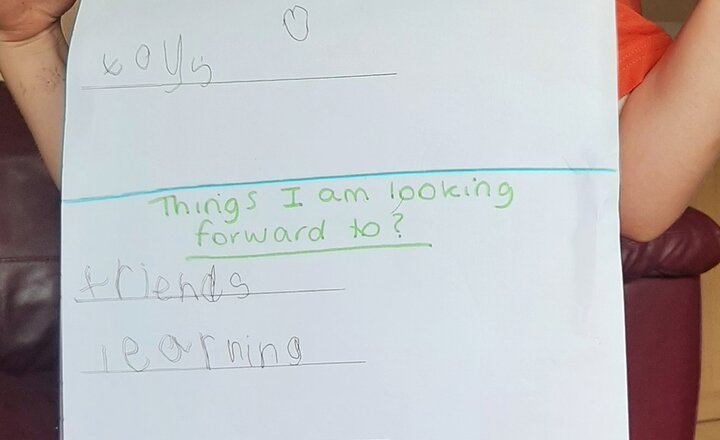 toys
Things I am looking
forward to?
friends
learning